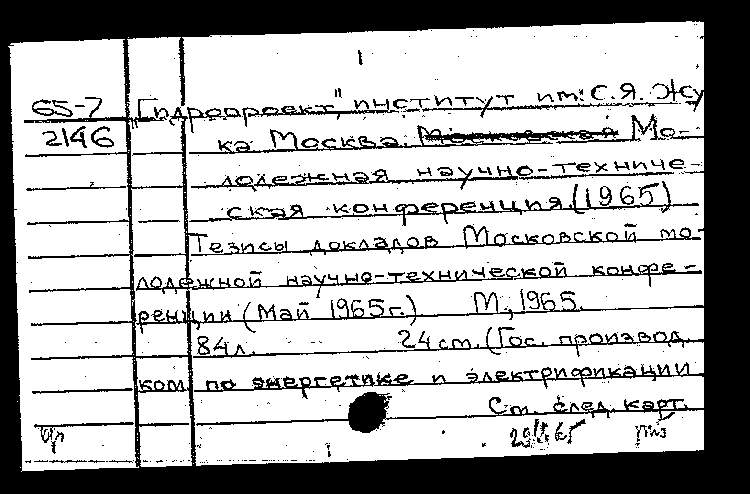 1
65-7 "Гидропроект", институт им. С.Я. Жу
2146 ка Москва. Московская Мо-
лодежная научно-техниче-
ская конференция (1965)
Тезисы докладов Московской мо-
лодежной научно-технической конфе-
ренции (Май 1965г.) М, 1965.
84л. 24 см. (Гос. производ.
ком. по энергетике и электрификации
См. след. карт.